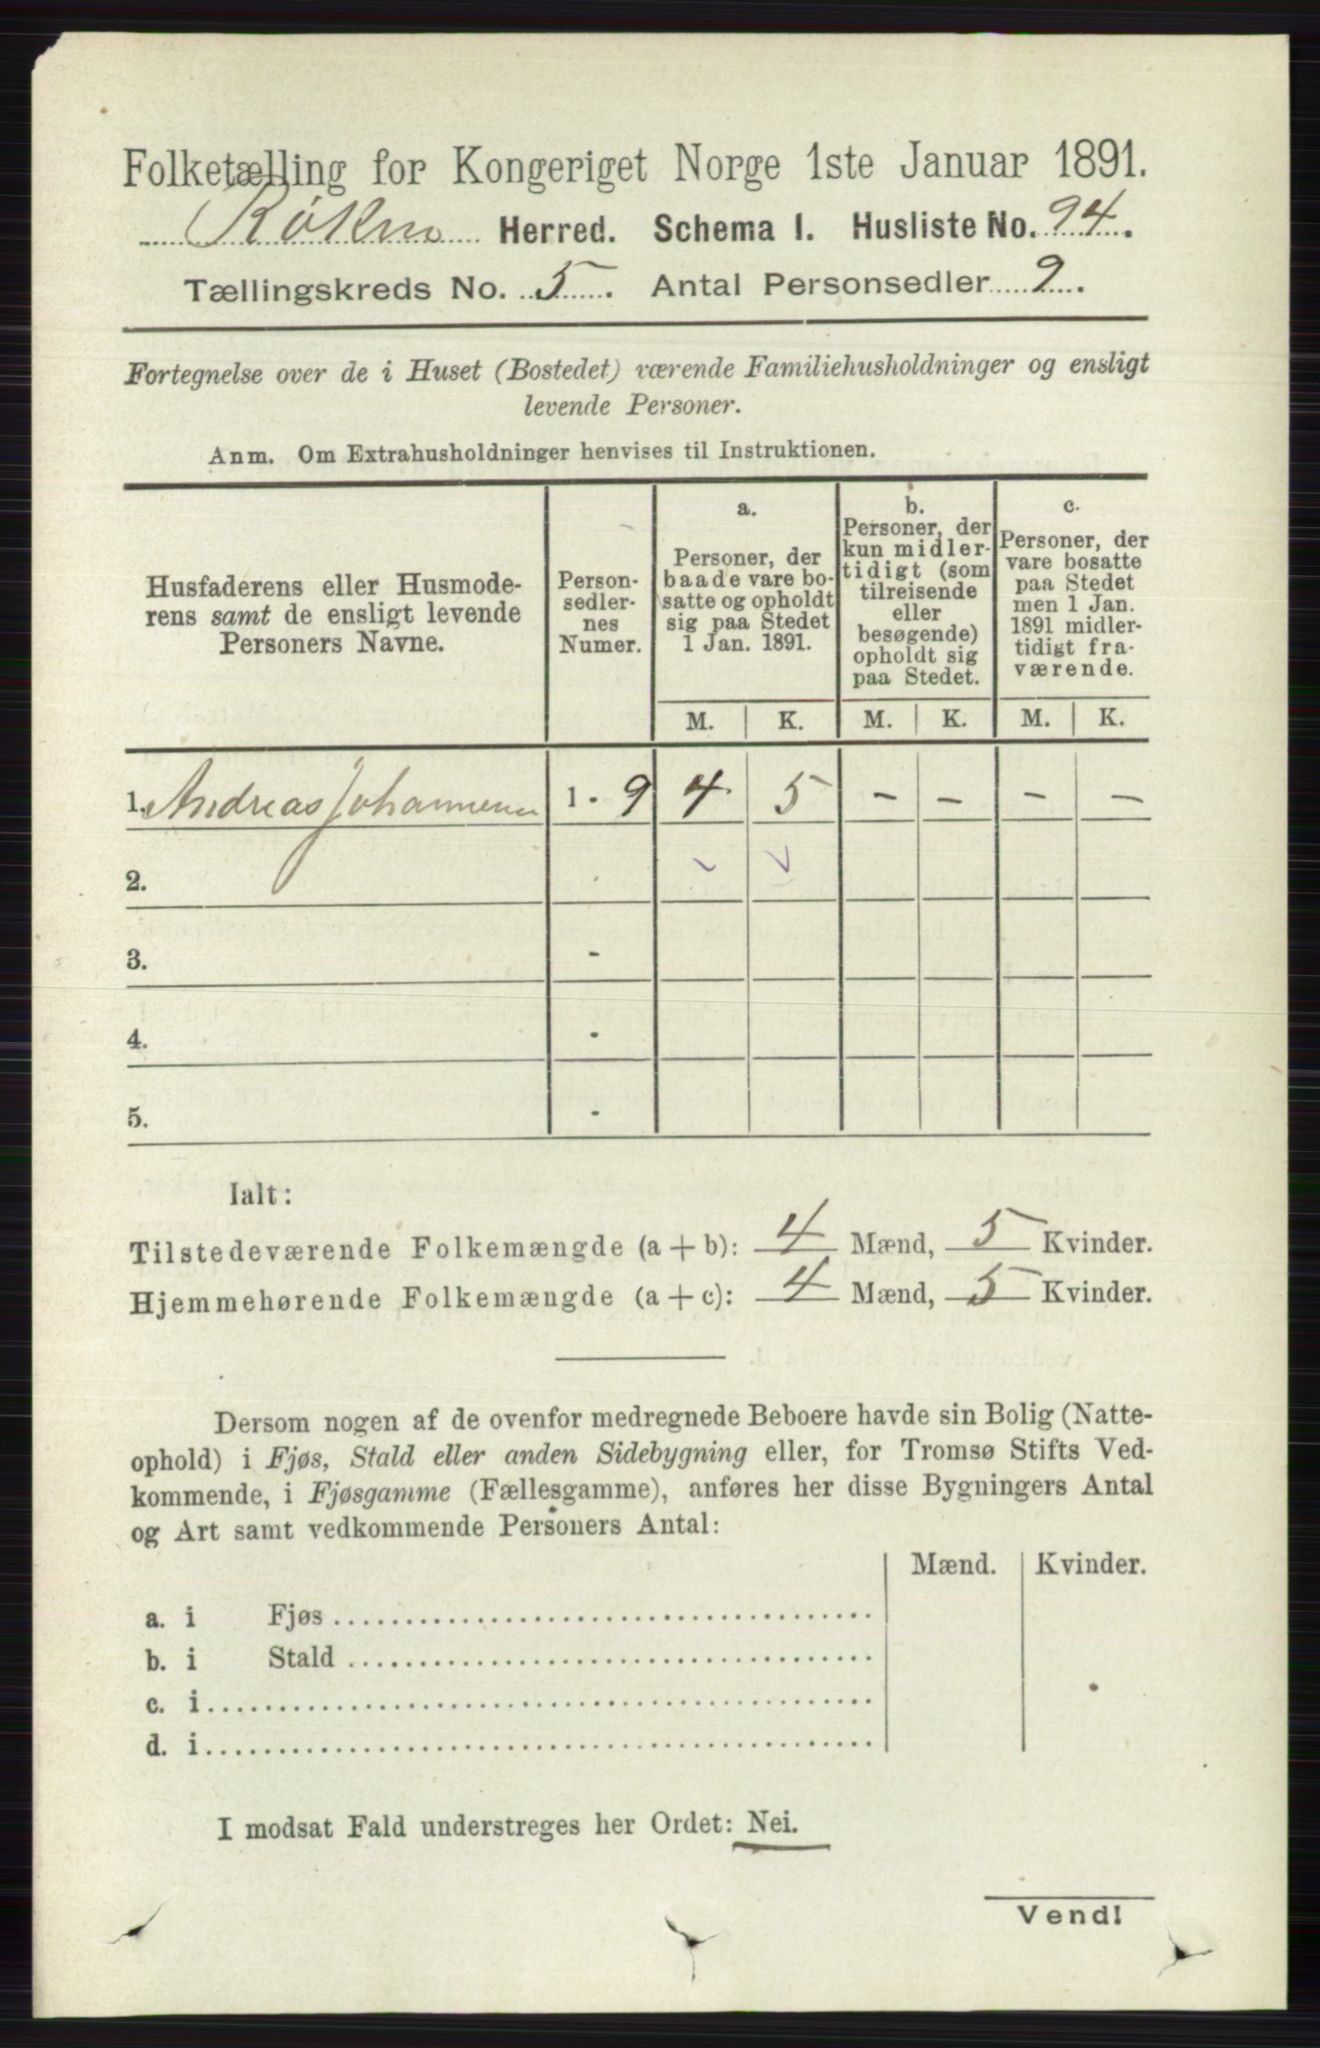 Folketælling for Kongeriget Norge 1ste Januar 1891.
Røken Herred. Schema I. Husliste No. 94.
Tællingskreds No. 5. Antal Personsedler 9.
Fortegnelse over de i Huset (Bostedet) værende Familiehusholdninger og ensligt
levende Personer.
Anm. Om Extrahusholdninger henvises til Instruktionen.
Husfaderens eller Husmode-
rens samt de ensligt levende
Personers Navne.
Person-
sedler-
nes
Numer.
a.
Personer, der
baade vare bo-
satte og opholdt
sig paa Stedet
1 Jan. 1891.
b.
Personer, der
kun midler-
tidigt (som
tilreisende
eller
besøgende)
opholdt sig
paa Stedet.
c.
Personer, der
vare bosatte
paa Stedet
men 1 Jan.
1891 midler-
tidigt fra-
værende.
M. K. M. K. M. K.
1. Andreas Johannesen 1 - 9 4 5 - - - -
2.
3. -
4. -
5. -
Ialt:
Tilstedeværende Folkemængde (a + b): 4 Mænd, 5 Kvinder.
Hjemmehørende Folkemængde (a + c): 4 Mænd, 5 Kvinder.
Dersom nogen af de ovenfor medregnede Beboere havde sin Bolig (Natte-
ophold) i Fjøs, Stald eller anden Sidebygning eller, for Tromsø Stifts Ved-
kommende, i Fjøsgamme (Fællesgamme), anføres her disse Bygningers Antal
og Art samt vedkommende Personers Antal:
Mænd. Kvinder.
a. i Fjøs
b. i Stald
c. i
d. i
I modsat Fald understreges her Ordet: Nei.
Vend!